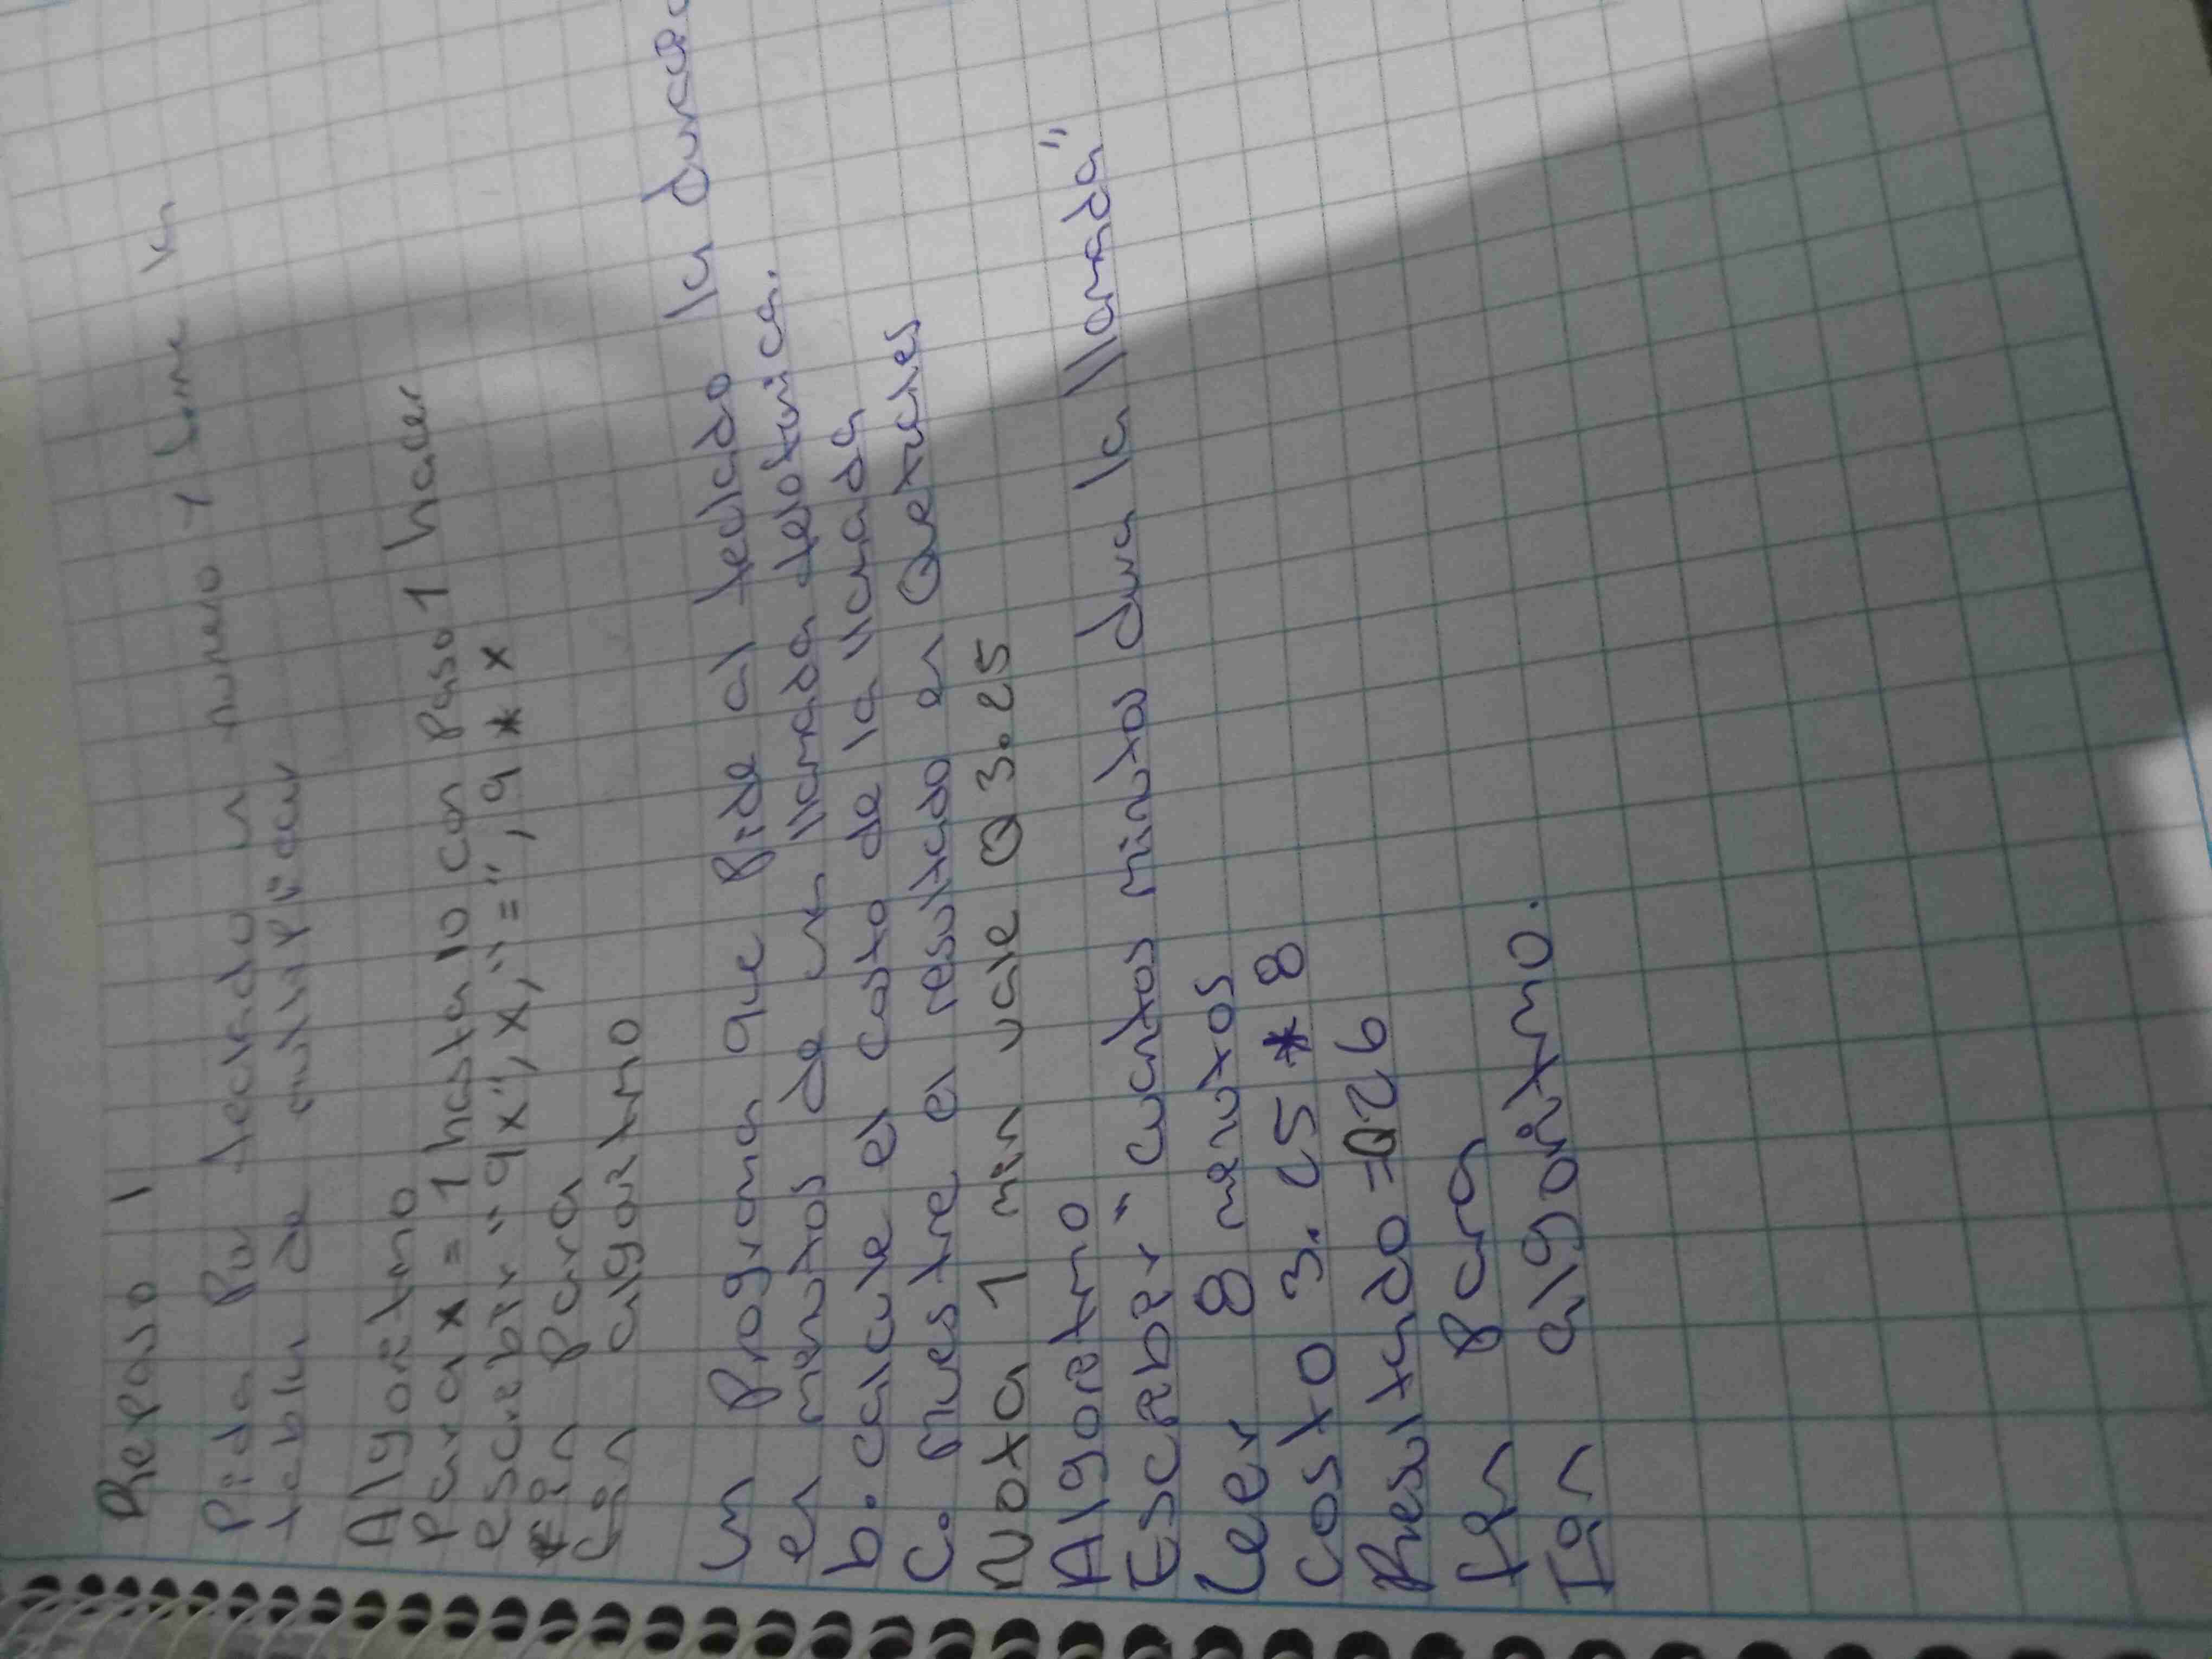 Repaso 1
Pida por teclado un numero y tome la
tabla de multiplicar
Algoritmo
Para x = 1 hasta 10 con paso 1 hacer
escribir "9x", x, "=", 9 * x
Fin para
Fin algoritmo
Un Programa que pide al teclado la
en minutos de una llamada telefonica.
b. calcule el costo de la llamada
c. muestre el resultado en Quetzales
Nota 1 min vale Q 3.25
Algoritmo
Escribir "cuantos minutos dura la llamada"
Leer 8 minutos
Costo 3.25 * 8
Resultado = Q26
Fin Para
Fin algoritmo.